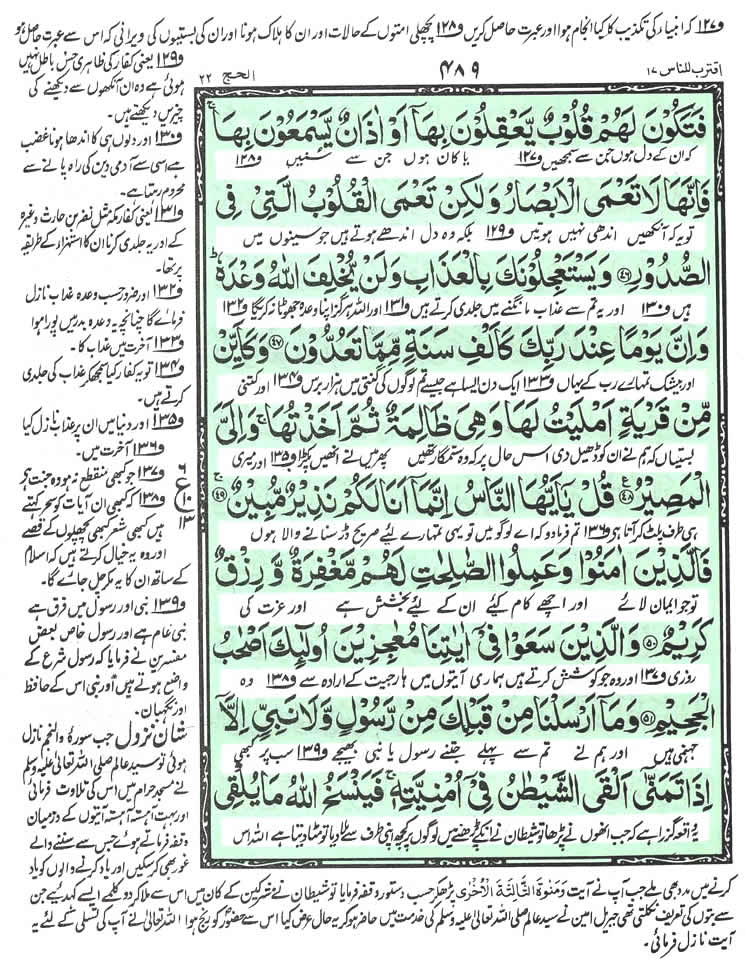 و۱۲۷ کہ انبیاء کی تکذیب کا کیا انجام ہوا اور عبرت حاصل کریں و۱۲۸ پچھلی امتوں کے حالات اور ان کا ہلاک ہونا اور ان کی بستیوں کی ویرانی کہ اس سے عبرت حاصل ہو
اقترب للناس ۱۷
۴۸۹
الحج ۲۲
فَتَكُوْنَ لَهُمْ قُلُوْبٌ يَّعْقِلُوْنَ بِهَاۤ اَوْ اٰذَانٌ يَّسْمَعُوْنَ بِهَاۚ
کہ ان کے دل ہوں جن سے سمجھیں و۱۲۷ یا کان ہوں جن سے سنیں و۱۲۸
فَاِنَّهَا لَا تَعْمَى الْاَبْصَارُ وَلٰكِنْ تَعْمَى الْقُلُوْبُ الَّتِیْ فِی
تو یہ کہ آنکھیں اندھی نہیں ہوتیں و۱۲۹ بلکہ وہ دل اندھے ہوتے ہیں جو سینوں میں
الصُّدُوْرِ ﴿۴۶﴾ وَيَسْتَعْجِلُوْنَكَ بِالْعَذَابِ وَلَنْ يُّخْلِفَ اللّٰهُ وَعْدَهٗؕ
ہیں و۱۳۰ اور یہ تم سے عذاب مانگنے میں جلدی کرتے ہیں و۱۳۱ اور اللہ ہرگز اپنا وعدہ جھوٹا نہ کریگا و۱۳۲
وَاِنَّ يَوْمًا عِنْدَ رَبِّكَ كَاَلْفِ سَنَةٍ مِّمَّا تَعُدُّوْنَ ﴿۴۷﴾ وَكَاَيِّنْ
اور بیشک تمہارے رب کے یہاں و۱۳۳ ایک دن ایسا ہے جیسے تم لوگوں کی گنتی میں ہزار برس و۱۳۴ اور کتنی
مِّنْ قَرْيَةٍ اَمْلَيْتُ لَهَا وَهِیَ ظَالِمَةٌ ثُمَّ اَخَذْتُهَاۚ وَاِلَیَّ
بستیاں کہ ہم نے ان کو ڈھیل دی اس حال پر کہ وہ ستمگار تھیں پھر میں نے انھیں پکڑا و۱۳۵ اور میری
الْمَصِيْرُ ﴿۴۸﴾ قُلْ يٰۤاَيُّهَا النَّاسُ اِنَّمَاۤ اَنَا لَكُمْ نَذِيْرٌ مُّبِيْنٌۚ ﴿۴۹﴾
ہی طرف پلٹ کر آنا ہی و۱۳۶ تم فرما دو کہ اے لوگو میں تو یہی تمہارے لیے صریح ڈر سنانے والا ہوں
فَالَّذِيْنَ اٰمَنُوْا وَعَمِلُوا الصّٰلِحٰتِ لَهُمْ مَّغْفِرَةٌ وَّ رِزْقٌ
تو جو ایمان لائے اور اچھے کام کیے ان کے لیے بخشش ہے اور عزت کی
كَرِيْمٌ ﴿۵۰﴾ وَالَّذِيْنَ سَعَوْا فِیْۤ اٰيٰتِنَا مُعٰجِزِيْنَ اُولٰٓئِكَ اَصْحٰبُ
روزی و۱۳۷ اور وہ جو کوشش کرتے ہیں ہماری آیتوں میں ہار جیت کے ارادہ سے و۱۳۸ وہ
الْجَحِيْمِ ﴿۵۱﴾ وَمَاۤ اَرْسَلْنَا مِنْ قَبْلِكَ مِنْ رَّسُوْلٍ وَّلَا نَبِیٍّ اِلَّاۤ
جہنمی ہیں اور ہم نے تم سے پہلے جتنے رسول یا نبی بھیجے و۱۳۹ سب پر کبھی
اِذَا تَمَنّٰۤى اَلْقَى الشَّيْطٰنُ فِیْۤ اُمْنِيَّتِهٖۚ فَيَنْسَخُ اللّٰهُ مَا يُلْقِی
یہ واقعہ گزرا ہے کہ جب انھوں نے پڑھا تو شیطان نے انکے پڑھنے میں لوگوں پر کچھ اپنی طرف سے ملا دیا تو مٹا دیتا ہے اللہ اس
و۱۲۹ یعنی کفار کی ظاہری حس باطل نہیں
ہوئی ہے وہ ان آنکھوں سے دیکھنے کی
چیزیں دیکھتے ہیں۔
و۱۳۰ اور دلوں ہی کا اندھا ہونا غضب
ہے اسی سے آدمی دین کی راہ پانے سے
محروم رہتا ہے۔
و۱۳۱ یعنی کفار مکہ مثل نضر بن حارث وغیرہ
کے اور یہ جلدی کرنا ان کا استہزاء کے طریقہ
پر تھا۔
و۱۳۲ اور ضرور حسب وعدہ عذاب نازل
فرمائے گا چنانچہ یہ وعدہ بدر میں پورا ہوا
و۱۳۳ آخرت میں عذاب کا۔
و۱۳۴ تو یہ کفار کیا سمجھ کر عذاب کی جلدی
کرتے ہیں۔
و۱۳۵ اور دنیا میں ان پر عذاب نازل کیا
و۱۳۶ آخرت میں۔
و۱۳۷ جو کبھی منقطع نہ ہو وہ جنت ہے
و۱۳۸ کہ کبھی ان آیات کو سحر کہتے
ہیں کبھی شعر کبھی پچھلوں کے قصے
اور وہ یہ خیال کرتے ہیں کہ اسلام
کے ساتھ ان کا یہ مکر چل جائے گا۔
و۱۳۹ نبی اور رسول میں فرق ہے
نبی عام ہے اور رسول خاص بعض
مفسرین نے فرمایا کہ رسول شرع کے
واضع ہوتے ہیں اور نبی اس کے حافظ
اور نگہبان۔
شان نزول جب سورۂ والنجم نازل
ہوئی تو سید عالم صلی اللہ تعالیٰ علیہ وسلم
نے مسجد حرام میں اس کی تلاوت فرمائی
اور بہت آہستہ آہستہ آیتوں کے درمیان
وقفہ فرماتے ہوئے جس سے سننے والے
غور بھی کر سکیں اور یاد کرنے والوں کو یاد
کرنے میں مدد بھی ملے جب آپ نے آیت وَمَنٰوةَ الثَّالِثَةَ الْاُخْرٰى پڑھ کر حسب دستور وقفہ فرمایا تو شیطان نے مشرکین کے کان میں اس سے ملا کر دو کلمے ایسے کہہ دیے جن
سے بتوں کی تعریف نکلتی تھی جبریل امین نے سید عالم صلی اللہ تعالیٰ علیہ وسلم کی خدمت میں حاضر ہو کر یہ حال عرض کیا اس سے حضور کو رنج ہوا اللہ تعالیٰ نے آپ کی تسلی کے لئے یہ
آیت نازل فرمائی۔
ع
۶
۱۰
۱۳